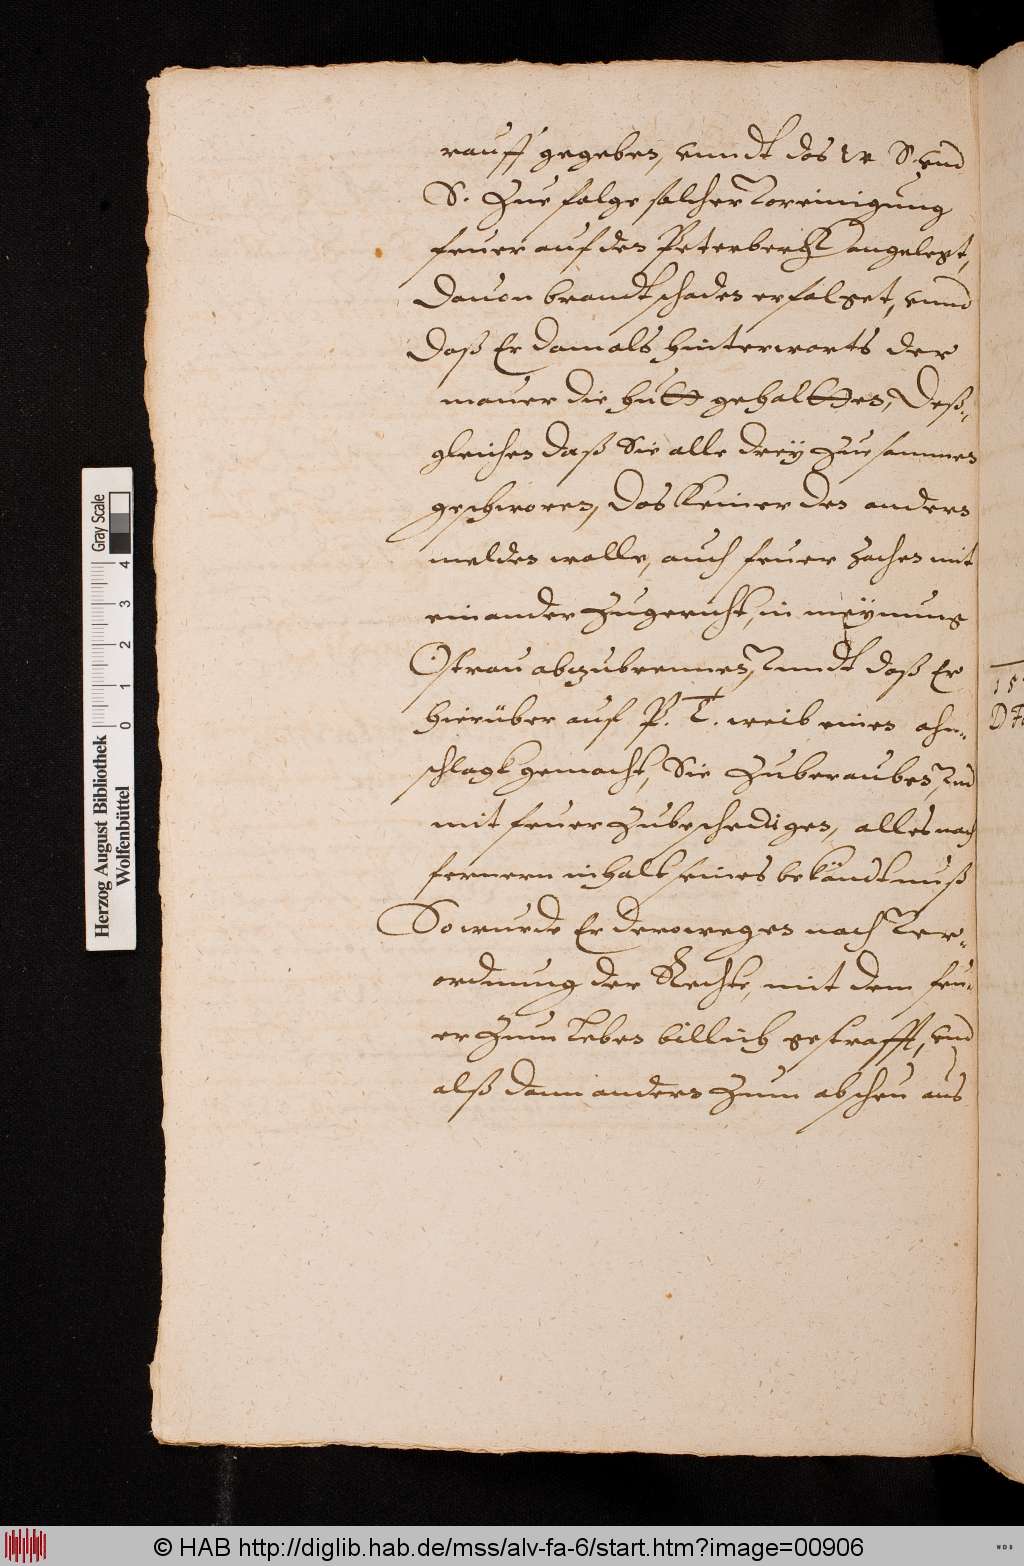 rauff gegeben, vnndt das er S. vnd
S. Zue folge solcher Voreinigung
feuer auf den Peterbergk angelegt,
Dauon brandtschaden erfolget, vnnd
Daß Er damals hinterwarts der
mauer die hutt gehaltten, Deß-
gleichen daß Sie alle drey Zuesammen
geschworen, Das Keiner den andern
melden wolle, auch feuer Zachen mit
einander Zugericht, in meÿnung
Ostrau abzubrennen, Vnndt daß Er
hierüber auf P. T. weib einen ahn-
schlagk gemacht, Sie Zuberauben, Vnd
mit feuer Zubeschedigen, alles nach
fernern inhalt seines bekändtnuß
So wurde Er derowegen nach Ver-
ordnung der Rechte, mit dem feu-
er Zum Leben billich gestrafft, vnd
alß dann andern Zum abscheu aus
15
D Fo
Herzog August Bibliothek
Wolfenbüttel
0 1 2 3 4
Gray Scale
© HAB http://diglib.hab.de/mss/alv-fa-6/start.htm?image=00906
WDB